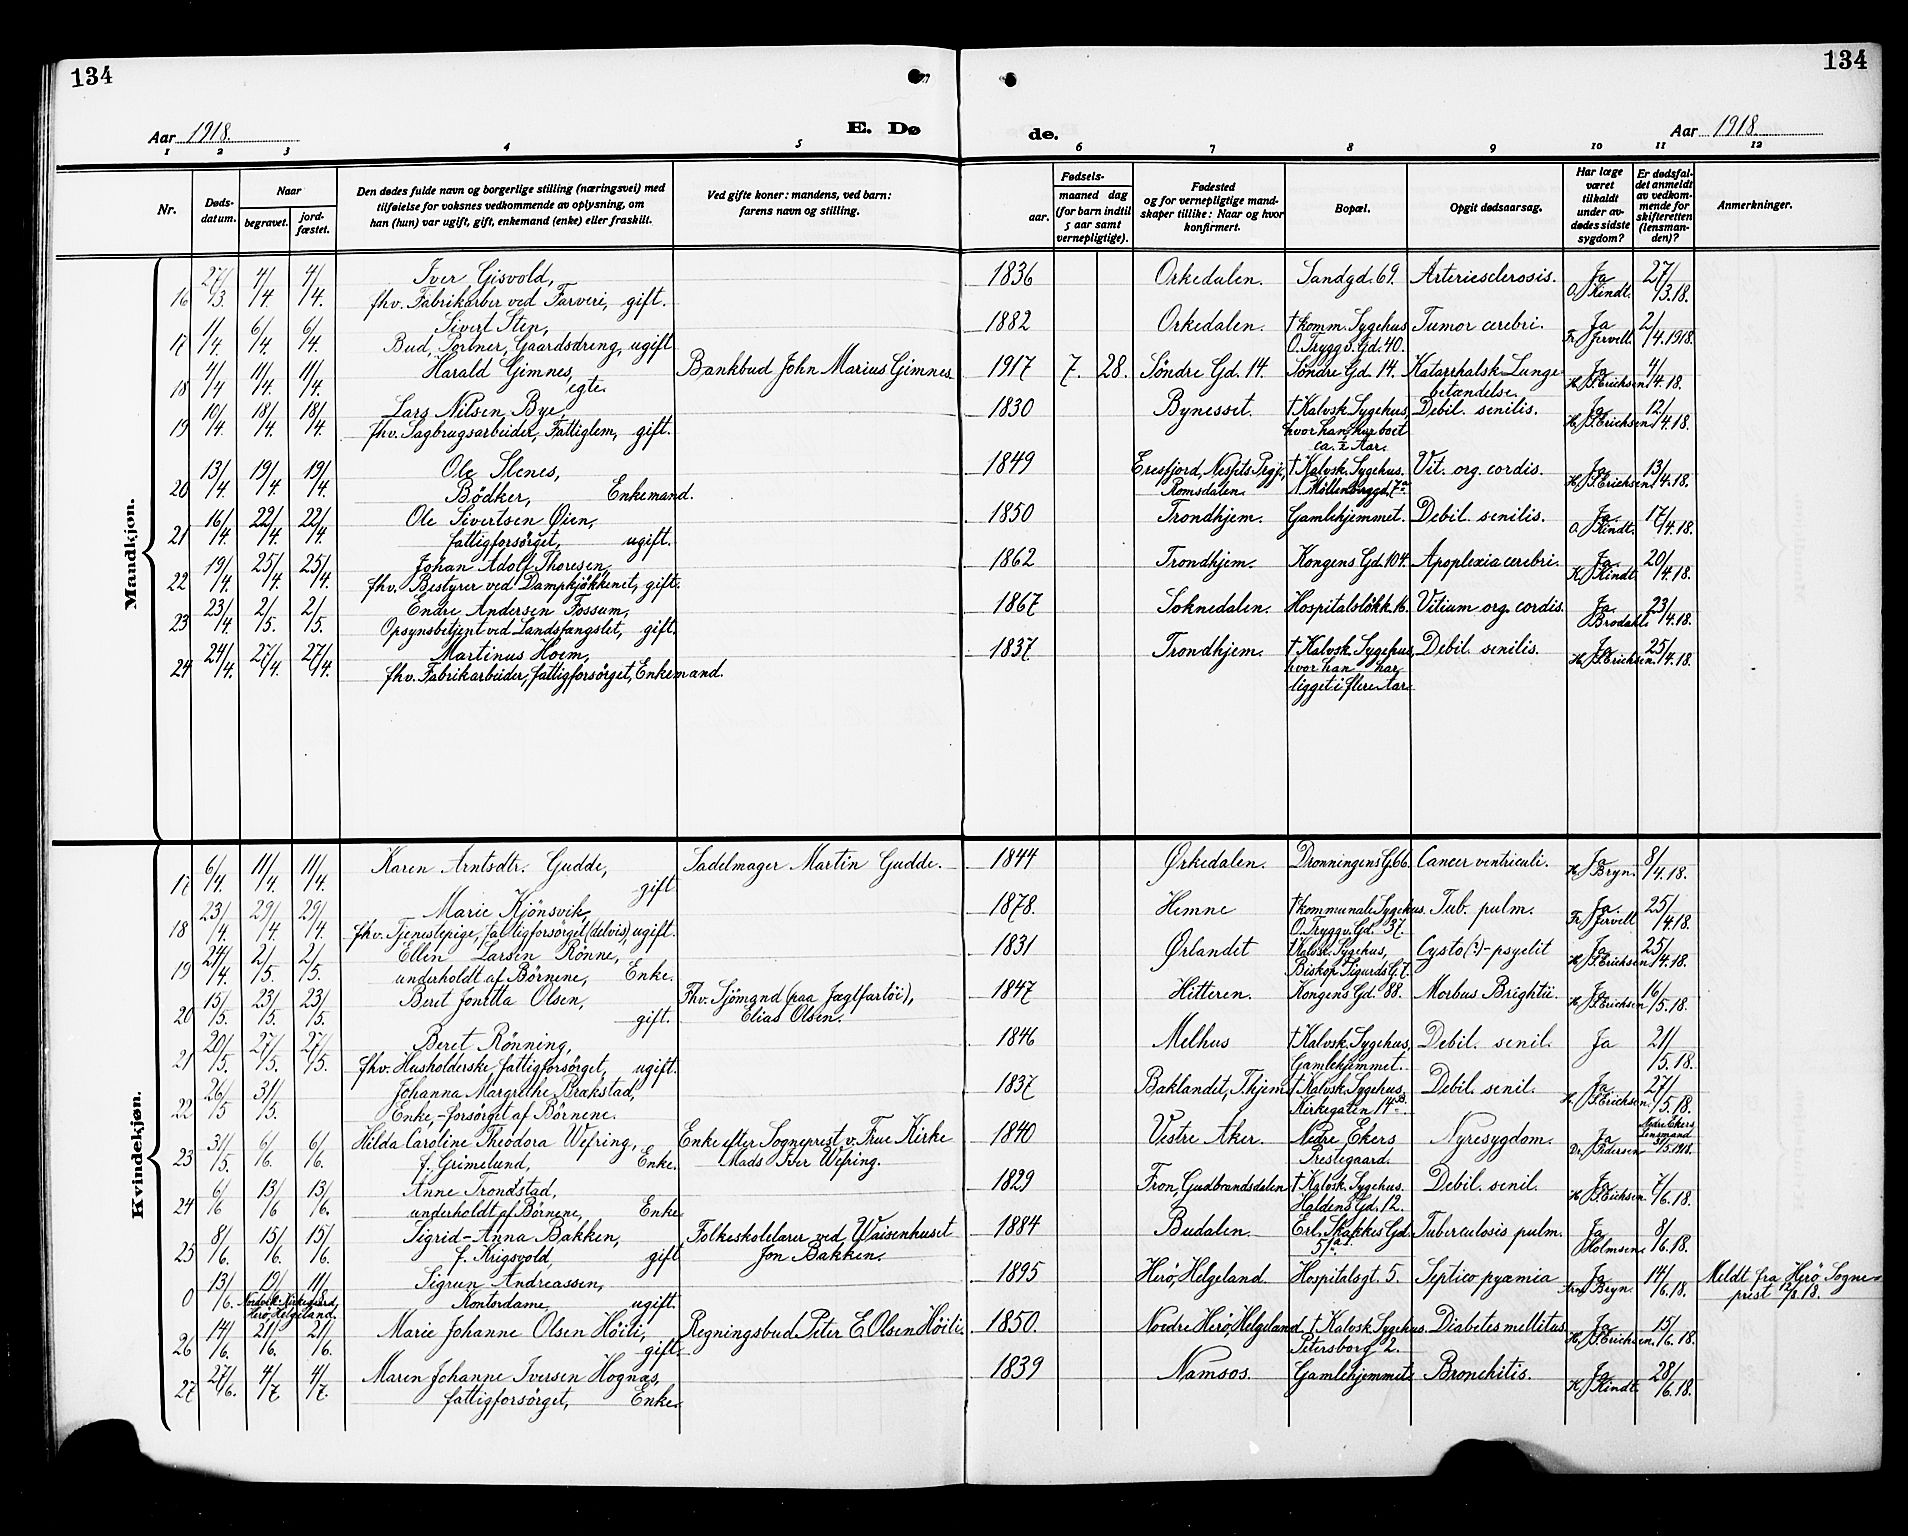 134
134
Aar 1918.
E. Dø
de.
Aar 1918
1 2 3 4 5 6 7 8 9 10 11 12
Nr.
Døds-
datum.
Naar
begravet.
jord-
fæstet.
Den dødes fulde navn og borgerlige stilling (næringsvei) med
tilføielse for voksnes vedkommende av oplysning, om
han (hun) var ugift, gift, enkemand (enke) eller fraskilt.
Ved gifte koner: mandens, ved barn:
farens navn og stilling.
Fødsels-
aar.
maaned dag
(for barn indtil
5 aar samt
vernepligtige).
Fødested
og for vernepligtige mand-
skaper tillike: Naar og hvor
konfirmert.
Bopæl.
Opgit dødsaarsag.
Har læge
været
tilkaldt
under av-
dødes sidste
sygdom?
Er dødsfal-
det anmeldt
av vedkom-
mende for
skifteretten
(lensman-
den)?
Anmerkninger.
Mandkjøn.
16 27/3. 4/4 4/4. Iver Gisvold, 1836 Orkedalen. Sandgd. 69. Arteriesclerosis. Ja 27/3.18.
fhv. Fabrikarber ved Farveri, gift. O. J. Kindt.
17 1/4. 6/4. 6/4. Sivert Sten, 1882 Orkedalen. † komm. Sygehus Tumor cerebri. Ja 2/4.1918.
Bud, Portner, Gaardsdreng, ugift O. Tryggv. Gd. 40. Fr. Jervell
18 4/4 11/4. 11/4. Harald Gimnes, Bankbud John Marius Gimnes 1917 7. 28. Söndre Gd. 14. Söndre Gd. 14. Katarrhalsk Lunge Ja 4/4.18.
egte. betændelse. H. J. S. Erichsen
19 10/4. 18/4. 18/4. Lars Nilsen Bye, 1830 Bynesset. † Kalvsk. Sygehus, Debil. senilis. Ja 12/4.18.
fhv. Sagbrugsarbeider, Fattiglem, gift. hvor han har boet H. J. S. Erichsen
ca. ½ Aar.
20 13/4. 19/4. 19/4. Ole Slenes, 1849 Eresfjord, Nesets Prgj., † Kalvsk. Sygehus. Vit. org. cordis. Ja 13/4.18.
Bödker, Enkemand. Romsdalen. Möllenberggd. 7a H. J. S. Erichsen
21 16/4 22/4. 22/4 Ole Sivertsen Øien, 1850 Trondhjem. Gamlehjemmet. Debil. senilis. Ja 17/4.18.
fattigforsörget, ugift. O. J. Kindt.
22 19/4. 25/4. 25/4. Johan Adolf Thoresen 1862 Trondhjem. Kongens Gd. 104. Apoplexia cerebri. Ja 20/4.18.
fhv. Bestyrer ved Dampkjökkenet, gift. K. J. Kindt.
23 23/4. 2/5. 2/5. Endre Andersen Fossum, 1867 Soknedalen. Hospitalslökk. 16. Vitium org. cordis. Ja. 23/4.18.
Opsynsbetjent ved Landsfangslet, gift. Brodahl
24 24/4. 27/4. 27/4. Martinus Hoem, 1837 Trondhjem. † Kalvsk. Sygehus, Debil. senilis. Ja 25/4.18.
fhv. Fabrikarbeider, fattigforsörget, Enkemand. hvor han har H. J. S. Erichsen.
ligget i flere Aar.
Kvindekjøn.
17 6/4. 11/4. 11/4. Karen Arntsdtr. Gudde, Sadelmager Martin Gudde. 1844 Ørkedalen. Dronningens G. 66. Cancer ventriculi. Ja 8/4.18.
gift H. J. Bryn.
18 23/4. 29/4. 29/4. Marie Kjönsvik, 1878. Hemne † kommunale Sygehus. Tub. pulm. Ja. 25/4.18.
fhv. Tjenestepige, fattigforsörget (delvis), ugift. O. Tryggv. Gd. 37. Fr. Jervell
19 24/4 2/5. 2/5. Ellen Larsen Rönne, 1831 Ørlandet † Kalvsk. Sygehus, Cysto(?)-pyelit Ja 25/4.18.
underholdt af Börnene, Enke. Biskop Sigurds G. 7. H. J. S. Erichsen
20 15/5. 23/5. 23/5. Beret Jonetta Olsen, Fhv. Sjömand (paa Jagtfartöi), 1847 Hitteren. Kongens Gd. 88. Morbus Brightii. Ja 16/5.18.
gift. Elias Olsen. H. J. S. Erichsen
21 20/5. 27/5. 27/5. Beret Rönning, 1846 Melhus † Kalvsk. Sygehus, Debil. senil. Ja 21/5.18.
fhv. Husholderske, fattigforsörget, ugift. Gamlehjemmet.
22 26/5 31/5. Johanna Margrethe Brakstad, 1837 Baklandet, Thjem † Kalvsk. Sygehus Debil. senil. Ja 27/5.18.
Enke, - forsörget af Börnene. Kirkegaten 14B. H. J. S. Erichsen.
23 31/5. 6/6. 6/6. Hilda Caroline Theodora Wefring, Enke efter Sogneprest v. Frue Kirke 1840 Vestre Aker. Nedre Ekers Nyresygdom. Ja Nedre Ekers Lensmand 31/5.1918.
f. Grimelund, Enke. Mads Iver Wefring. Prestegaard. Dr. J. Pedersen
24 6/6 13/6 13/6. Anne Trondstad, 1829 Fron, Gudbrandsdalen † Kalvsk. Sygehus. Debil. senil. Ja 7/6.18.
underholdt af Börnene, Enke. Haldens Gd. 12. H. J. S. Erichsen.
25 8/6. 15/6. 15/6. Sigrid-Anna Bakken, Folkeskolelærer ved Waisenhuset 1884 Budalen. Erl. Skakkes Gd. Tuberculosis pulm. Ja 8/6.18.
f. Krigsvold, gift Jon Bakken. 51a I. J. Holmsen.
0 13/6. 19/6. 11/8. Sigrun Andreassen, 1895 Herö, Helgeland. Hospitalsgt. 5. Septico pyæmia Ja 14/6.18. Meldt fra Herö Sogne-
Nordvik Kirkegaard, Herö, Helgeland. Kontordame, ugift. Arne Bryn. prest 12/8.18.
26 14/6. 21/6. 21/6. Marie Johanne Olsen Höiti, Regningsbud Peter E. Olsen Höiti. 1850. Nordre Herö, Helgeland † Kalvsk. Sygehus. Diabetes mellitus Ja 15/6.18.
gift. Petersborg 2. H. J. S. Erichsen.
27 27/6. 4/7 4/7. Maren Johanne Iversen Hognäs, 1839 Namsos. Gamlehjemmet Bronchitis. Ja 28/6.18.
fattigforsörget, Enke. K. J. Kindt.